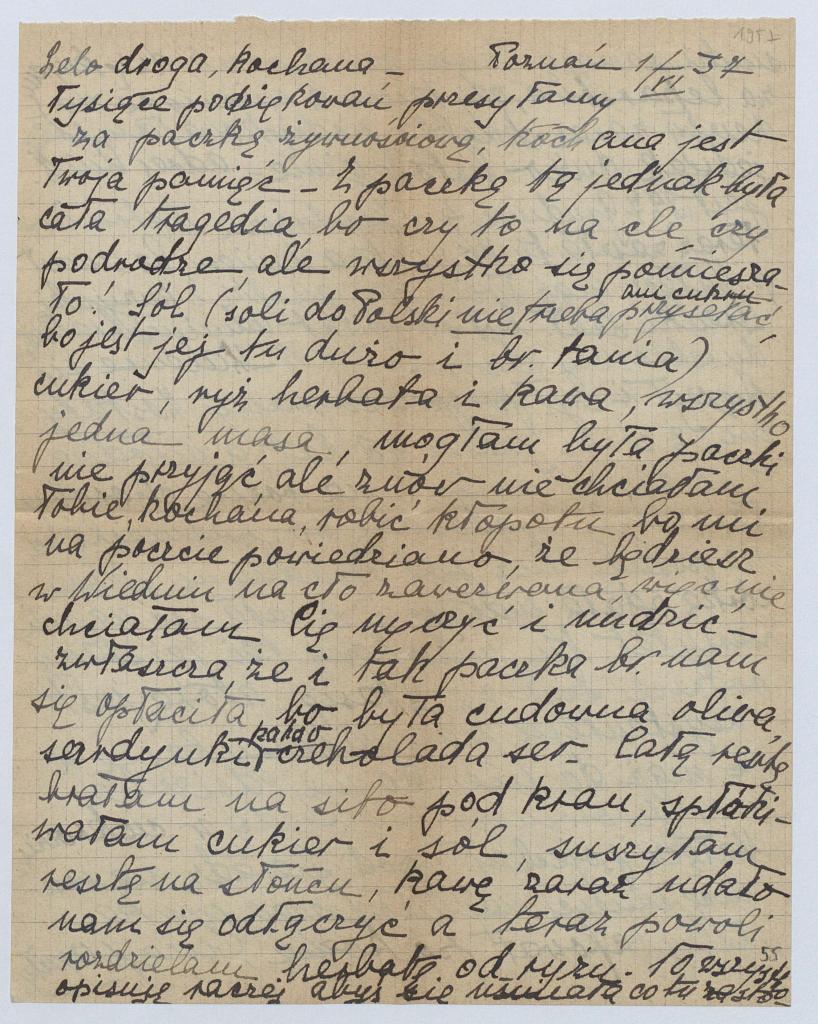 1957
Lelo droga, kochana – Poznań 1/VI 57
Tysiące podziękowań przesyłamy
za paczkę żywnościową, kochana jest
Twoja pamięć – Z paczką tą jednak była
cała tragedia, bo czy to na cle, czy
podrodze, ale wszystko się pomiesza-
ło! Sól (soli do Polski nie trzeba ani cukru przysełać,
bo jest jej tu dużo i br. tania)
cukier, ryż herbata i kawa, wszystko
jedna masa, mogłam była paczki
nie przyjąć ale znów nie chciałam
Tobie, kochana, robić kłopotu bo mi
na poczcie powiedziano, że będziesz
w Wiedniu na cło zawezwana, więc nie
chciałam Cię męczyć i nudzić –
zwłaszcza, że i tak paczka br. nam
się opłaciła, bo była cudowna oliwa,
sardynki, kakao czekolada ser. Całą resztę
brałam na sito pod kran, spłóki-
wałam cukier i sól, suszyłam
resztę na słońcu, kawę zaraz udało
nam się odłączyć a teraz powoli
rozdzielam herbatę od ryżu. To wszystko
opisuję raczej abyś się uśmiała co tu
55